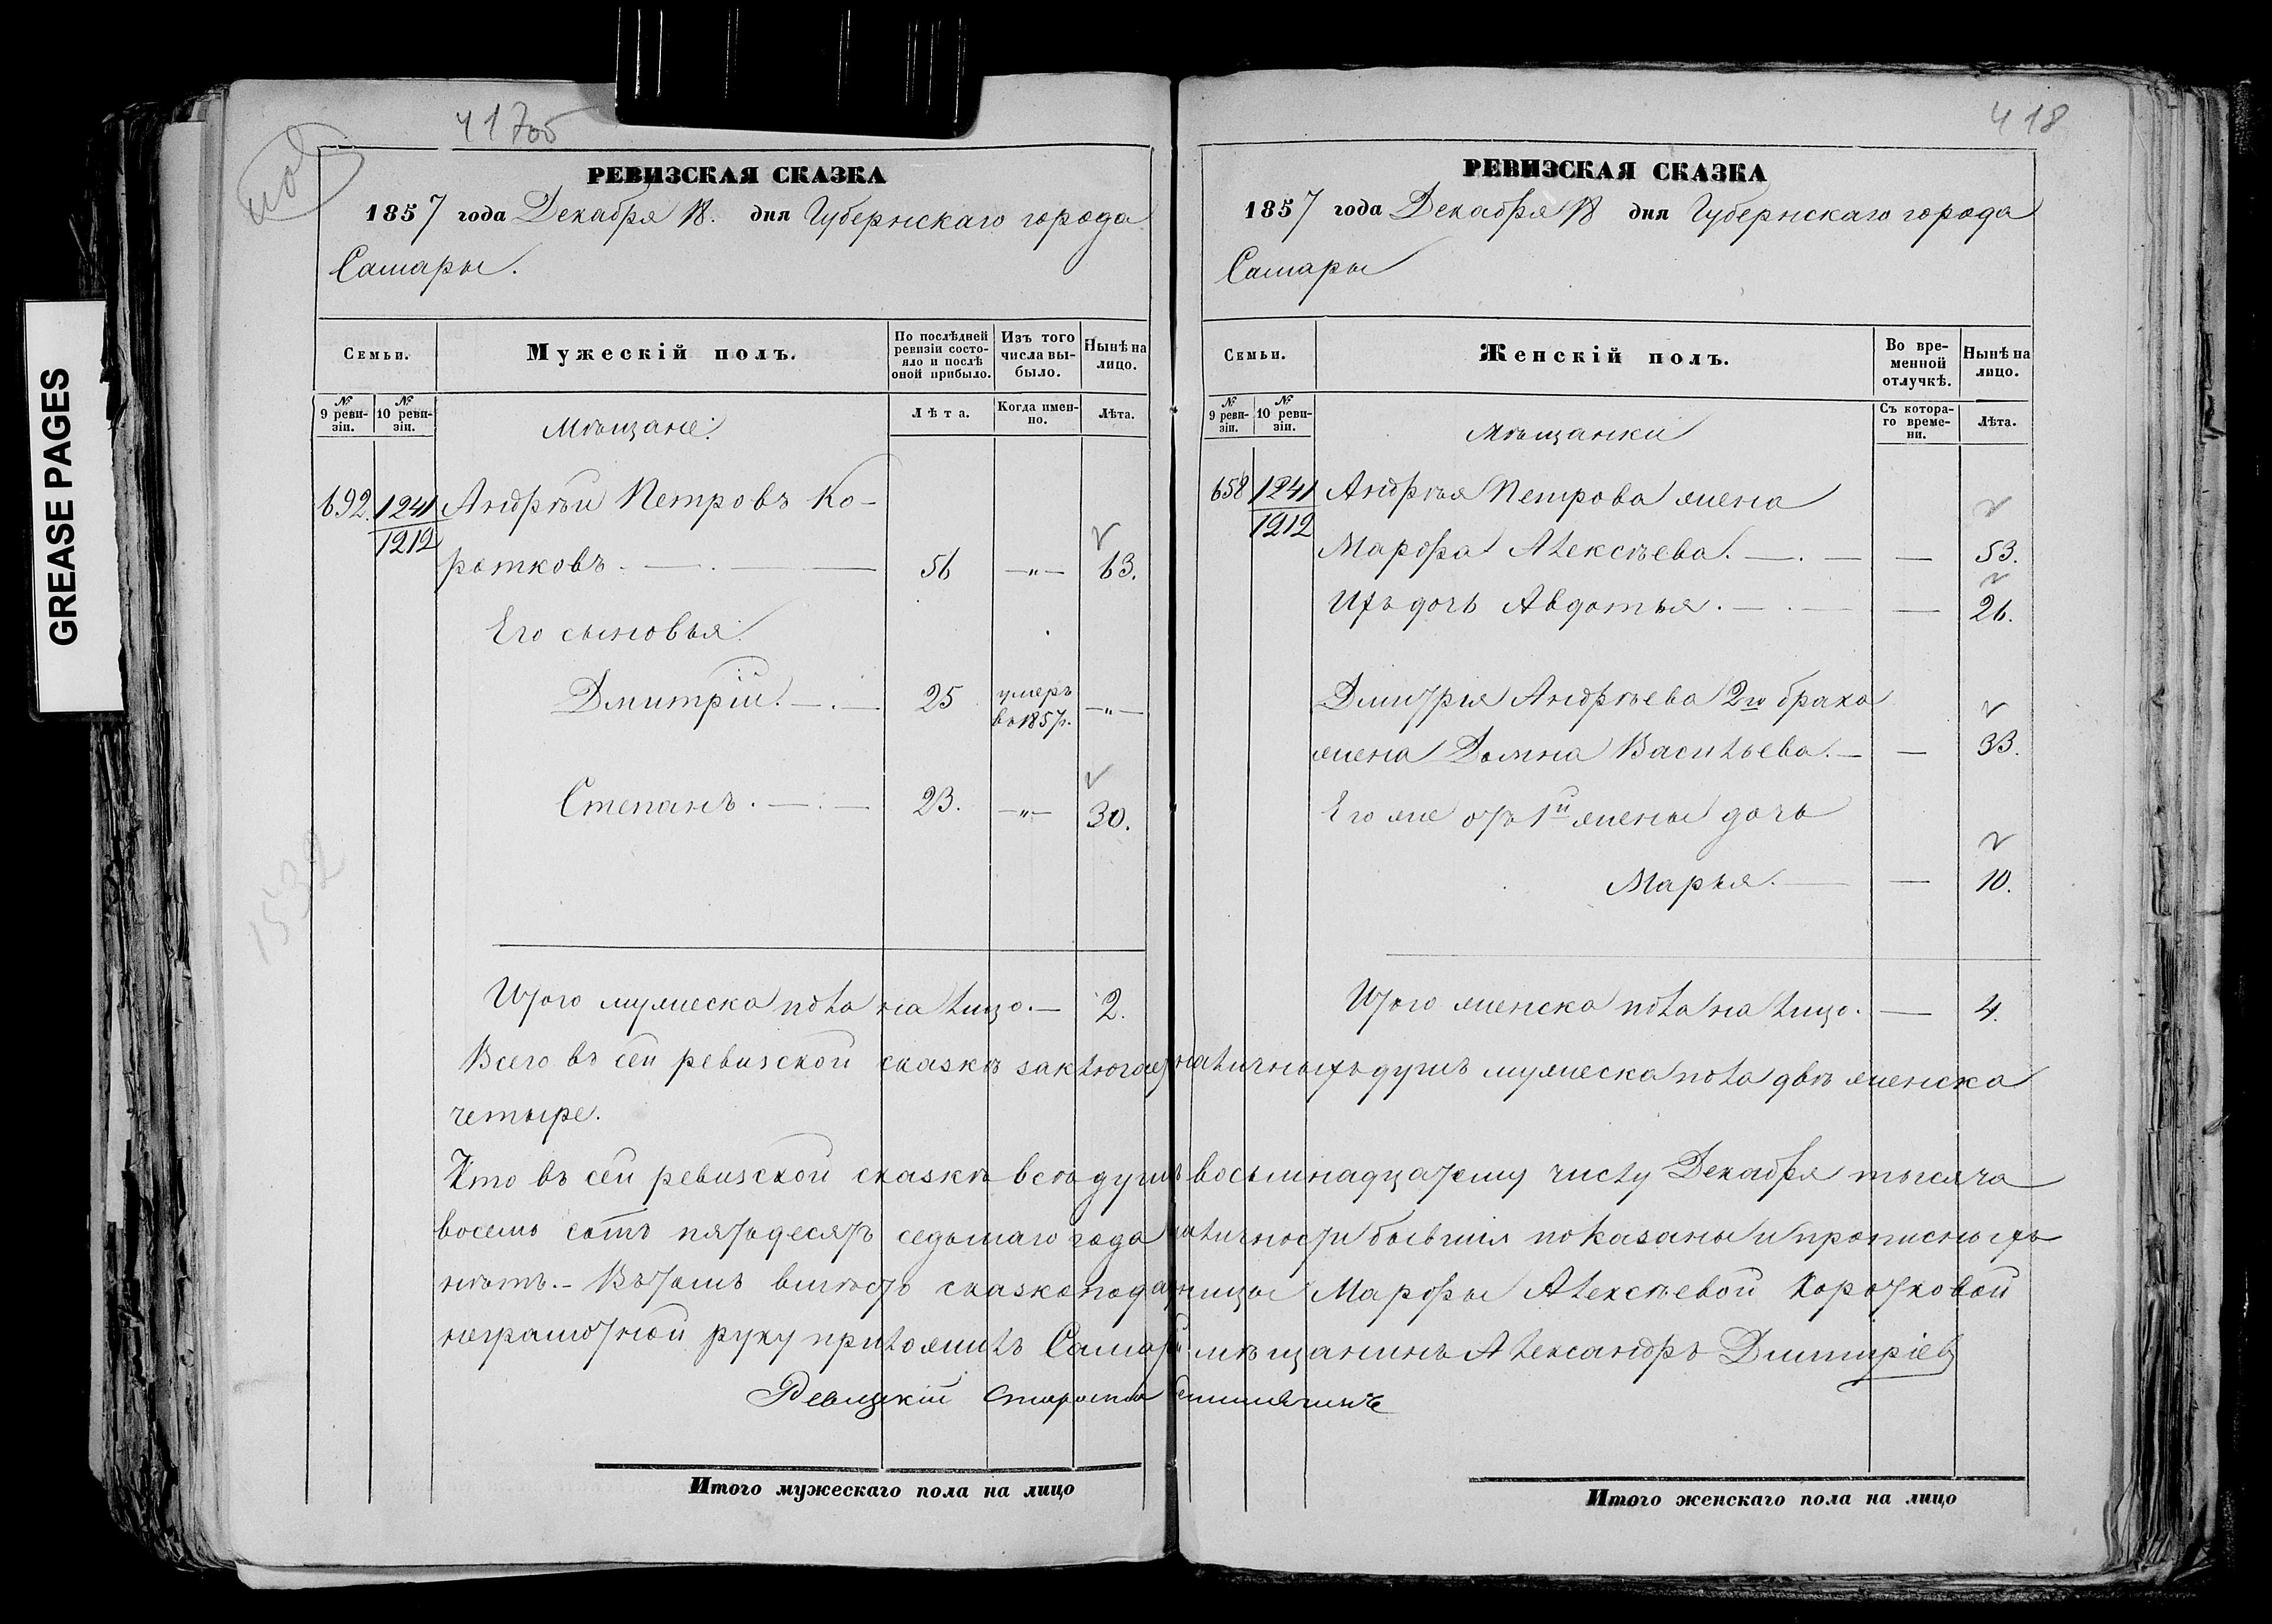 GREASE PAGES
417об
РЕВИЗСКАЯ СКАЗКА
1857 года Декабря 18. дня Губернскаго города
Самары.
Семьи.
Мужескій полъ.
По послѣдней ревизіи состояло и послѣ оной прибыло.
Изъ того числа выбыло.
Нынѣ на лицо.
№ 9 ревизіи.
№ 10 ревизіи.
Мѣщане.
Лѣта.
Когда именно.
Лѣта.
692. 1241 Андрѣй Петровъ Ко-
1212
ротковъ. 56 — „ — 63.
Его сыновья
Дмитрій. 25 умеръ въ 1857г. — „ —
Степанъ. 23. — „ — 30.
1532
Итого мужеска пола на лицо. — 2.
418
РЕВИЗСКАЯ СКАЗКА
1857 года Декабря 18 дня Губернскаго города
Самары
Семьи.
Женскій полъ.
Во временной отлучкѣ.
Нынѣ на лицо.
№ 9 ревизіи.
№ 10 ревизіи.
Мѣщанки
Съ котораго времени.
Лѣта.
658 1241 Андрѣя Петрова жена
1212
Марфа Алексѣева. — — 53.
Ихъ дочь Авдотья. — — 26.
Дмитрія Андрѣева 2го брака
жена Домна Васильева. — — 33.
Его же отъ 1й жены дочь
Марья. — — 10.
Итого женска пола на лицо. — 4.
Всего въ сей ревизской сказкѣ заключает наличныхъ душъ мужеска пола двѣ женска
четыре.
Что въ сей ревизской сказкѣ всѣ души восьмнадцатому числу Декабря тысяча
восемь сотъ пятьдесятъ седьмаго года наличности бывшія показаны и прописныхъ
нѣтъ. – Въ томъ вмѣсто сказкоподательницы Марфы Алексѣевой Коротковой
неграмотной руку приложилъ Самар мѣщанинъ Александръ Дмитріев
Ревизкій Староста
Итого мужескаго пола на лицо
Итого женскаго пола на лицо